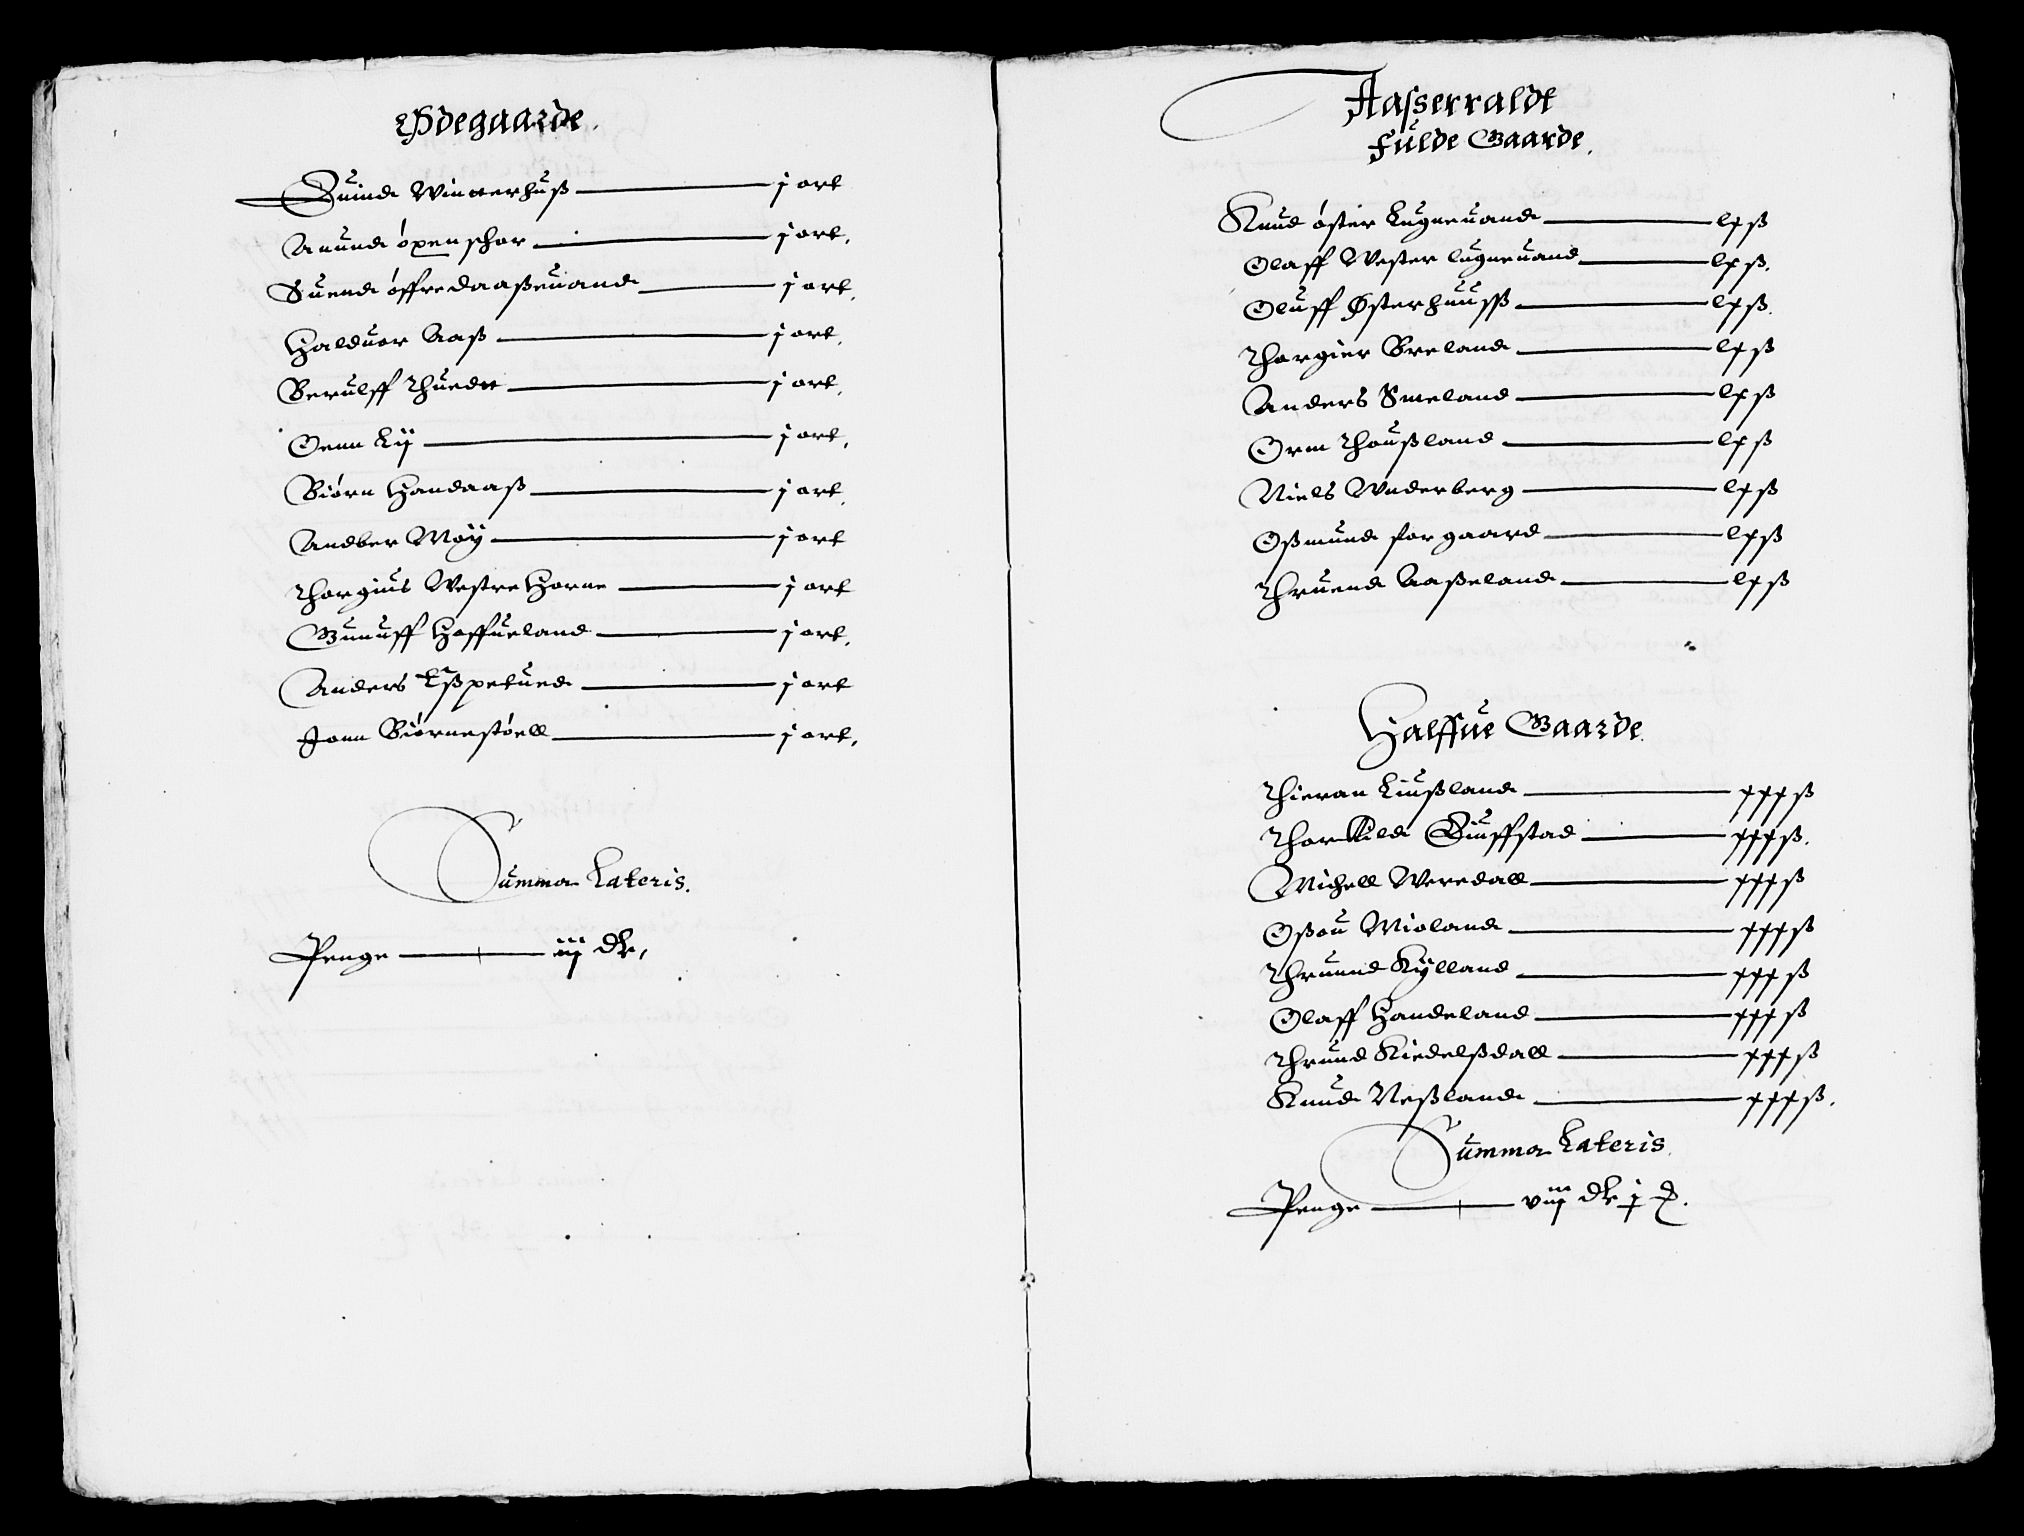 Ødegaarde.
Suind Winterhuß — j ort
Anund öpenschor — j ort,
Suend öffredaaßeuand — j ort,
Halduor Aaß — j ort,
Berulff Thuedt — j ort,
Oenn Lij — j ort,
Biörn Handaaß — j ort,
Andber Möy — j ort
Thorgius Westre Horne — j ort
Gunuff Hoffueland — j ort,
Anders Eßpetued — j ort
Jonn Biörnestöell — j ort,
Summa Lateris.
Penge — iij dlr,
Aasserraldt
Fulde Gaarde.
Knud öster Lugneuand — lxß
Olaff Wester lugneuand — lxß.
Oluff Østerhuusß — lxß.
Thorgier Breland — lxß
Anders Smeland — lxß
Orm Thoußland — lxß
Niels Wnderberg — lxß
Oßmund for gaard — lxß
Thruend Aaßeland — lxß
Halffue Gaarde.
Thieran Liußland — xxxß
Thorkild Siuffstad — xxxß.
Michell Weredall — xxxß
Oßou Mioland — xxxß
Thruend Kylland — xxxß
Olaff Handeland — xxxß
Thrund Kiedelßdall — xxxß
Knud Neßland — xxxß.
Summa Lateris.
Penge — viij dlr j